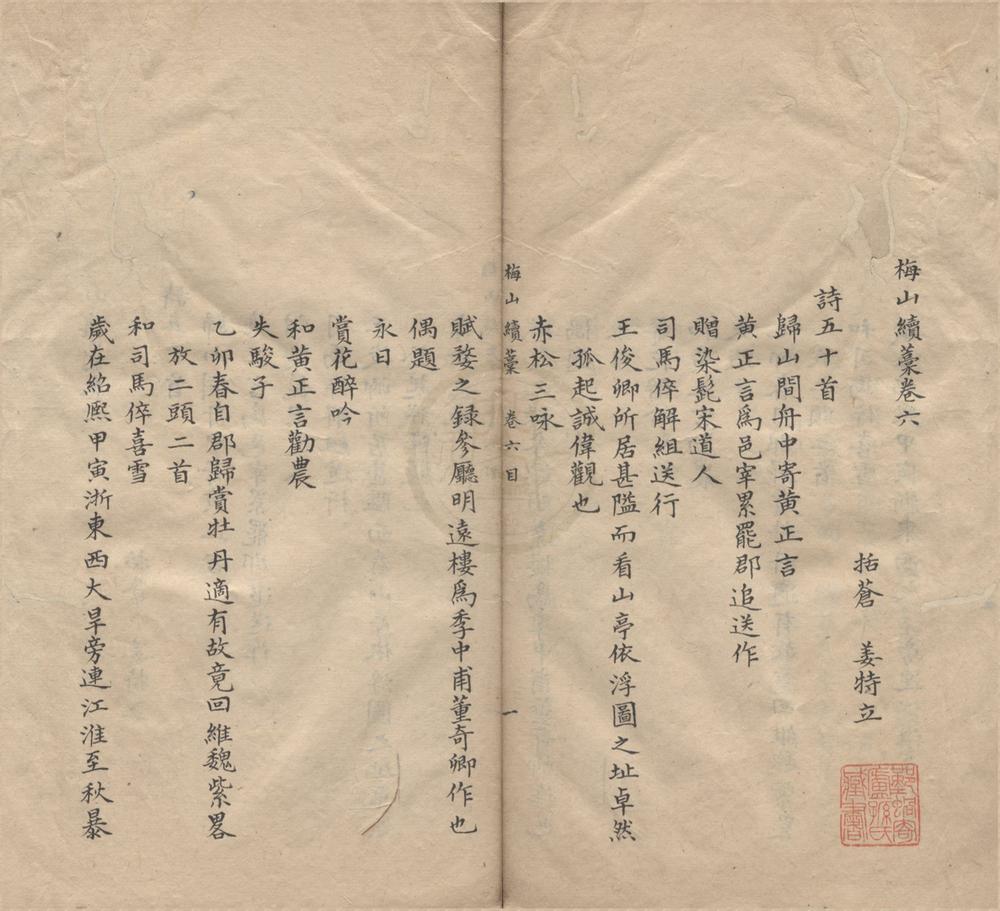 梅山續藁卷六
括蒼　姜特立
詩五十首
歸山間舟中寄黄正言
黄正言爲邑宰累罷郡追送作
贈染髭宋道人
司馬倅解組送行
王俊卿所居甚隘而看山亭依浮圖之址卓然
孤起誠偉觀也
赤松三咏
梅山續藁　卷六目　一
賦婺之録參廳明遠樓爲季中甫董奇卿作也
偶題
永日
賞花醉吟
和黄正言勸農
失駿子
乙卯春自郡歸賞牡丹適有故竟回維魏紫畧
放二頭二首
和司馬倅喜雪
歲在紹熈甲寅浙東西大旱旁連江淮至秋暴